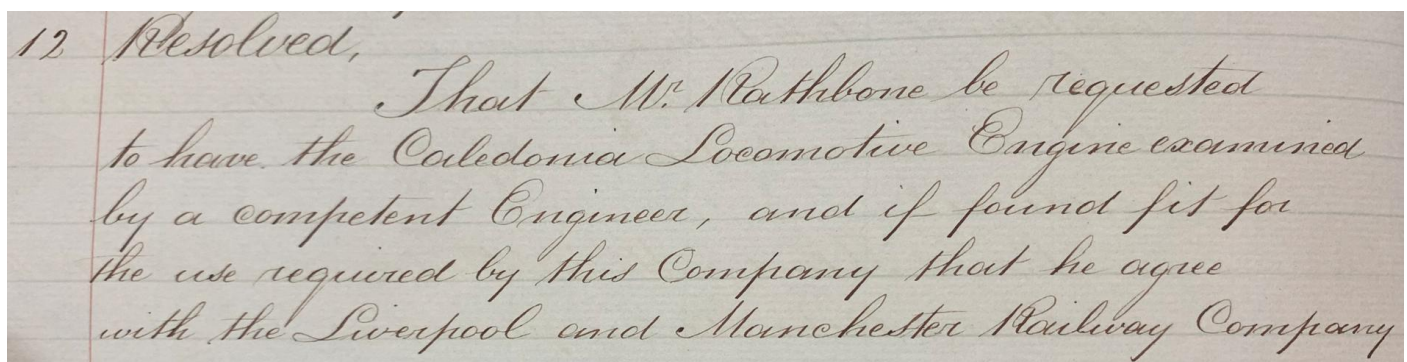 12 Resolved,
That Mr. Rathbone be requested
to have the Caledonia Locomotive Engine examined
by a competent Engineer, and if found fit for
the use required by this Company that he agree
with the Liverpool and Manchester Railway Company